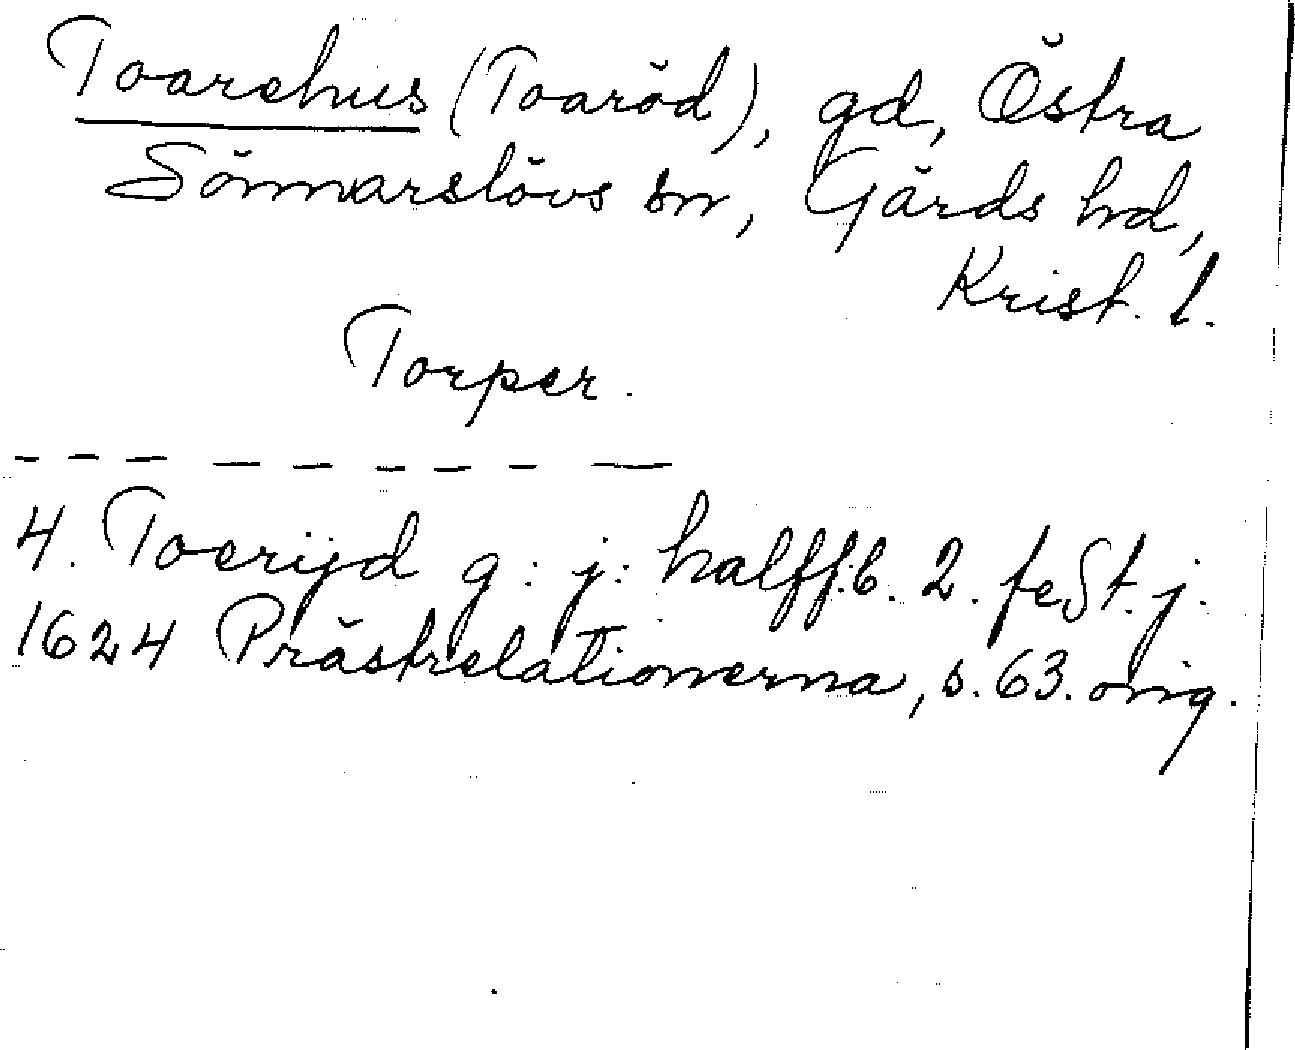 Toarehus (Toaröd), gd, Östra
Sönnarslövs sn, Gärds hd,
Krist. l.
Torper.
4. Toerijd g: j: halff.b. 2. fest. j.
1624 Prästrelationerna, s. 63. orig.